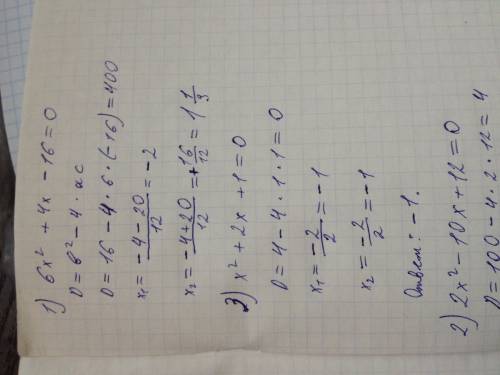 1) 6x² + 4x - 16 = 0
D = b² - 4 · ac
D = 16 - 4 · 6 · (-16) = 400
x₁ = (-4 - 20)/12 = -2
x₂ = (-4 + 20)/12 = +16/12 = 1 1/3
3) x² + 2x + 1 = 0
D = 4 - 4 · 1 · 1 = 0
x₁ = -2/2 = -1
x₂ = -2/2 = -1
Ответ: -1.
2) 2x² - 10x + 12 = 0
D = 100 - 4 · 2 · 12 = 4